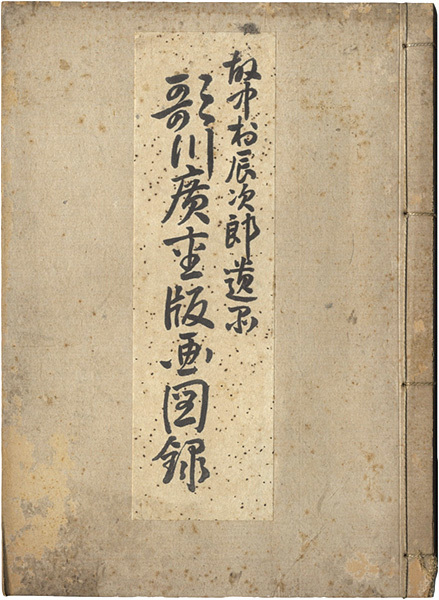 故中村辰次郎遺品
歌川廣重版画図録